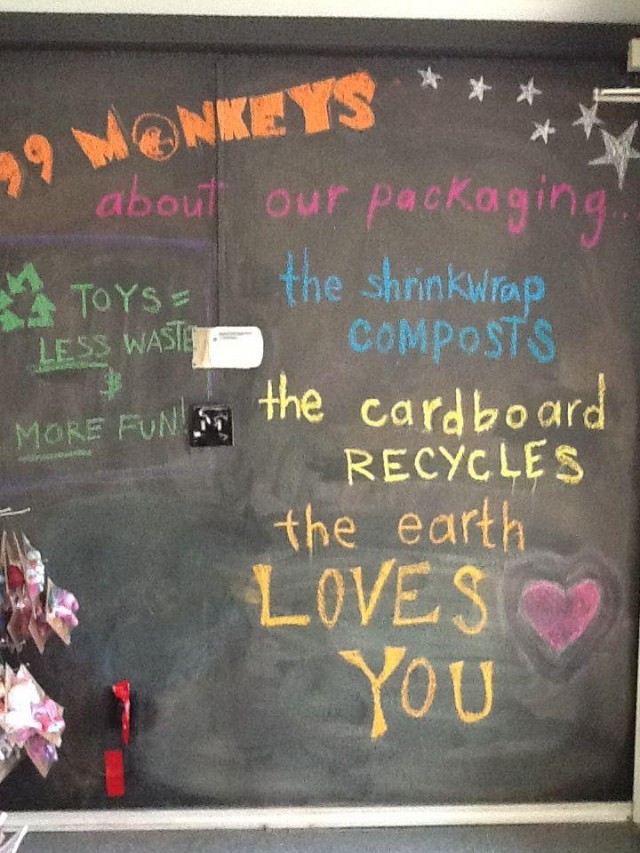 99 MONKEYS
about our packaging...
TOYS =
LESS WASTE
&
MORE FUN!
the shrinkwrap
COMPOSTS
the cardboard
RECYCLES
the earth
LOVES
YOU